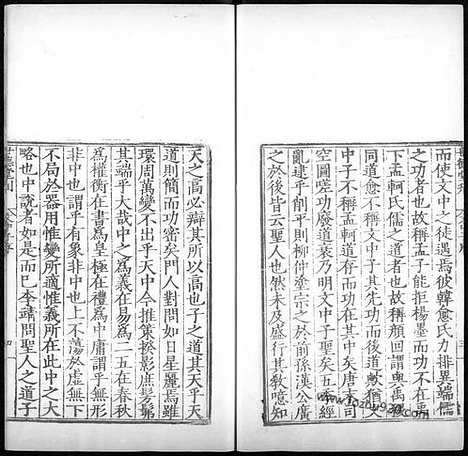 而使文中之徒遇焉彼韓愈氏力排異端儒
之功者也故稱孟子能拒楊墨而功不在禹
下孟軻氏儒之道者也故稱顏回謂與禹稷
同道愈不稱文中子其先功而後道歟猶文
中子不稱孟軻道存而功在其中矣唐末司
空圖嗟功廢道衰乃明文中子聖矣五季經
亂逮乎削平則柳仲塗宗之於前孫漢公廣
之於後皆云聖人也然未及盛行其教噫知
天之高必辯其所以高也子之道其天乎天
道則簡而功密矣門人對問如日星麗焉雖
環周萬變不出乎天中今推策揆影庶髣髴
其端乎大哉中之為義在易為二五在春秋
為權衡在書為皇極在禮為中庸謂乎無形
非中也謂乎有象非中也上不蕩於虛無下
不局於器用惟變所適惟義所在此中之大
略也中說者如是而已李靖問聖人之道子